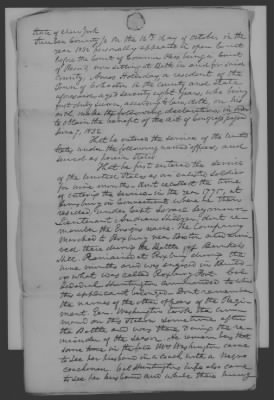 State of New York
Steuben County ss On the 16th day of October in the
year 1832 personally appears in open Court
before the Court of Common Pleas being a Court
of Record now sitting at Bath in and for said
County, Amos Holliday a resident of the
Town of in the county and state
aforesaid aged Years, who being
first duly sworn, according to law, doth on his
oath, make the following declaration in order
to obtain the benefit of the act of Congress passed
June 7, 1832
That he entered the service of the United
States under the following named officers, and
served as herein stated
That he first entered the service
of the United States as an enlisted soldier
for nine months. Not recollect the time
of entering the service in the year 1775, at
in Connecticut where he then
resided, under Capt
Lieutenant dont re-
member the Ensigns name. The Company
marched to Roxbury near Boston and
there during the Battle of Bunkers
Hill. Remained at Roxbury during the
nine months and was engaged in
of what was called Roxbury Fort. Col.
Huntington commanded to which
this applicant belonged. Dont remember
the names of the other officers of the Regi-
ment. Gen. Washington took the com-
mand on this station sometime after
the Battle and was there during the re-
mainder of the season. He remembers that
some time in Mrs Washington came
to see her husband in a coach with a Negro
coachman. Col Huntington's wife also came
to see her husband and while there